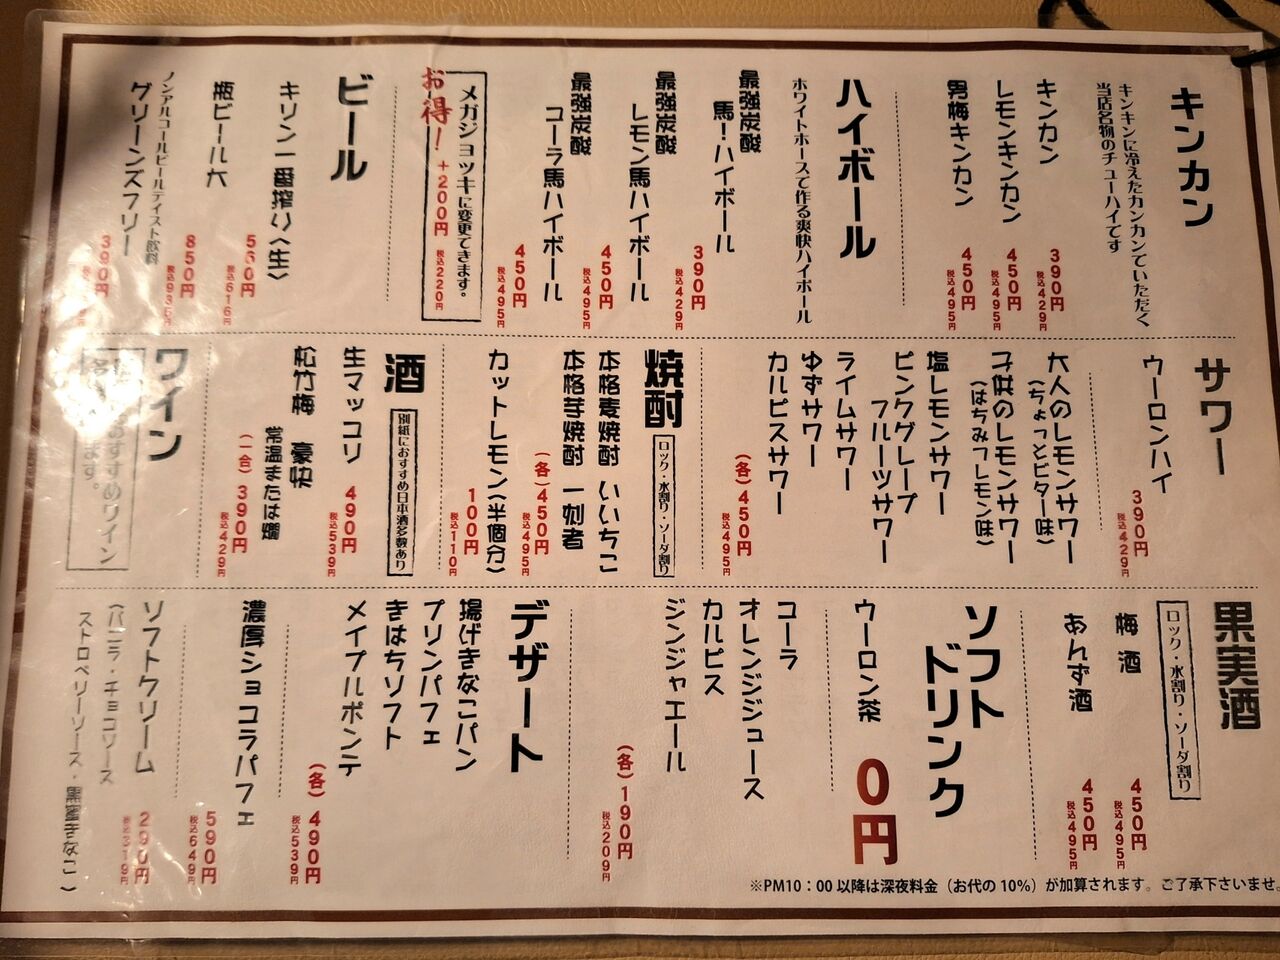 キンカン
キンキンに冷えたカンカンでいただく
当店名物のチューハイです
キンカン
390円
税込429円
レモンキンカン
450円
税込495円
男梅キンカン
450円
税込495円
ハイボール
ホワイトホースで作る爽快ハイボール
最強炭酸
馬！ハイボール
390円
税込429円
最強炭酸
レモン馬ハイボール
450円
税込495円
最強炭酸
コーラ馬ハイボール
450円
税込495円
メガジョッキに変更できます。
お得！ +200円 税込220円
ビール
キリン一番搾り〈生〉
560円
税込616円
瓶ビール大
850円
税込935円
ノンアルコールビールテイスト飲料
グリーンズフリー
390円
サワー
ウーロンハイ
390円
税込429円
大人のレモンサワー
(ちょっとビター味)
子供のレモンサワー
(はちみつレモン味)
塩レモンサワー
ピンクグレープ
フルーツサワー
ライムサワー
ゆずサワー
カルピスサワー
(各) 450円
税込495円
焼酎
ロック・水割り・ソーダ割り
本格麦焼酎 いいちこ
本格芋焼酎 一刻者
(各) 450円
税込495円
カットレモン〈半個分〉
100円
税込110円
酒
別紙におすすめ日本酒多数あり
生マッコリ
490円
税込539円
松竹梅 豪快
常温または燗
(一合) 390円
税込429円
ワイン
おすすめワイン
ます。
果実酒
ロック・水割り・ソーダ割り
梅酒
450円
税込495円
あんず酒
450円
税込495円
ソフト
ドリンク
ウーロン茶
0円
コーラ
オレンジジュース
カルピス
ジンジャエール
(各) 190円
税込209円
デザート
揚げきなこパン
プリンパフェ
きはちソフト
メイプルポンテ
(各) 490円
税込539円
濃厚ショコラパフェ
590円
税込649円
ソフトクリーム
290円
税込319円
(バニラ・チョコソース
ストロベリーソース・黒蜜きなこ)
※PM10：00以降は深夜料金（お代の10%）が加算されます。ご了承下さいませ。